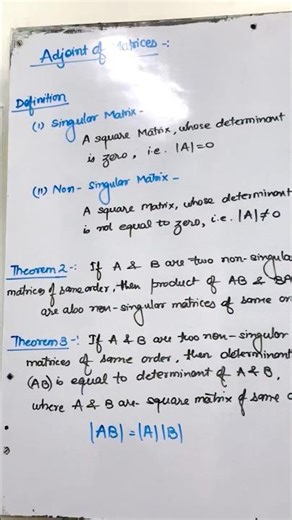 Adjoint of Matrices -:
Definition
(I) Singular Matrix -
A square Matrix, whose determinant
is zero, i.e. |A|=0
(II) Non-Singular Matrix -
A square matrix, whose determinant
is not equal to zero, i.e. |A|≠0
Theorem 2-: If A & B are two non-singula
matrices of same order, then product of AB & BA
are also non-singular matrices of same or
Theorem 3-: If A & B are two non-singular
matrices of same order, then determinant
(AB) is equal to determinant of A & B,
where A & B are square matrix of same o
|AB| = |A||B|